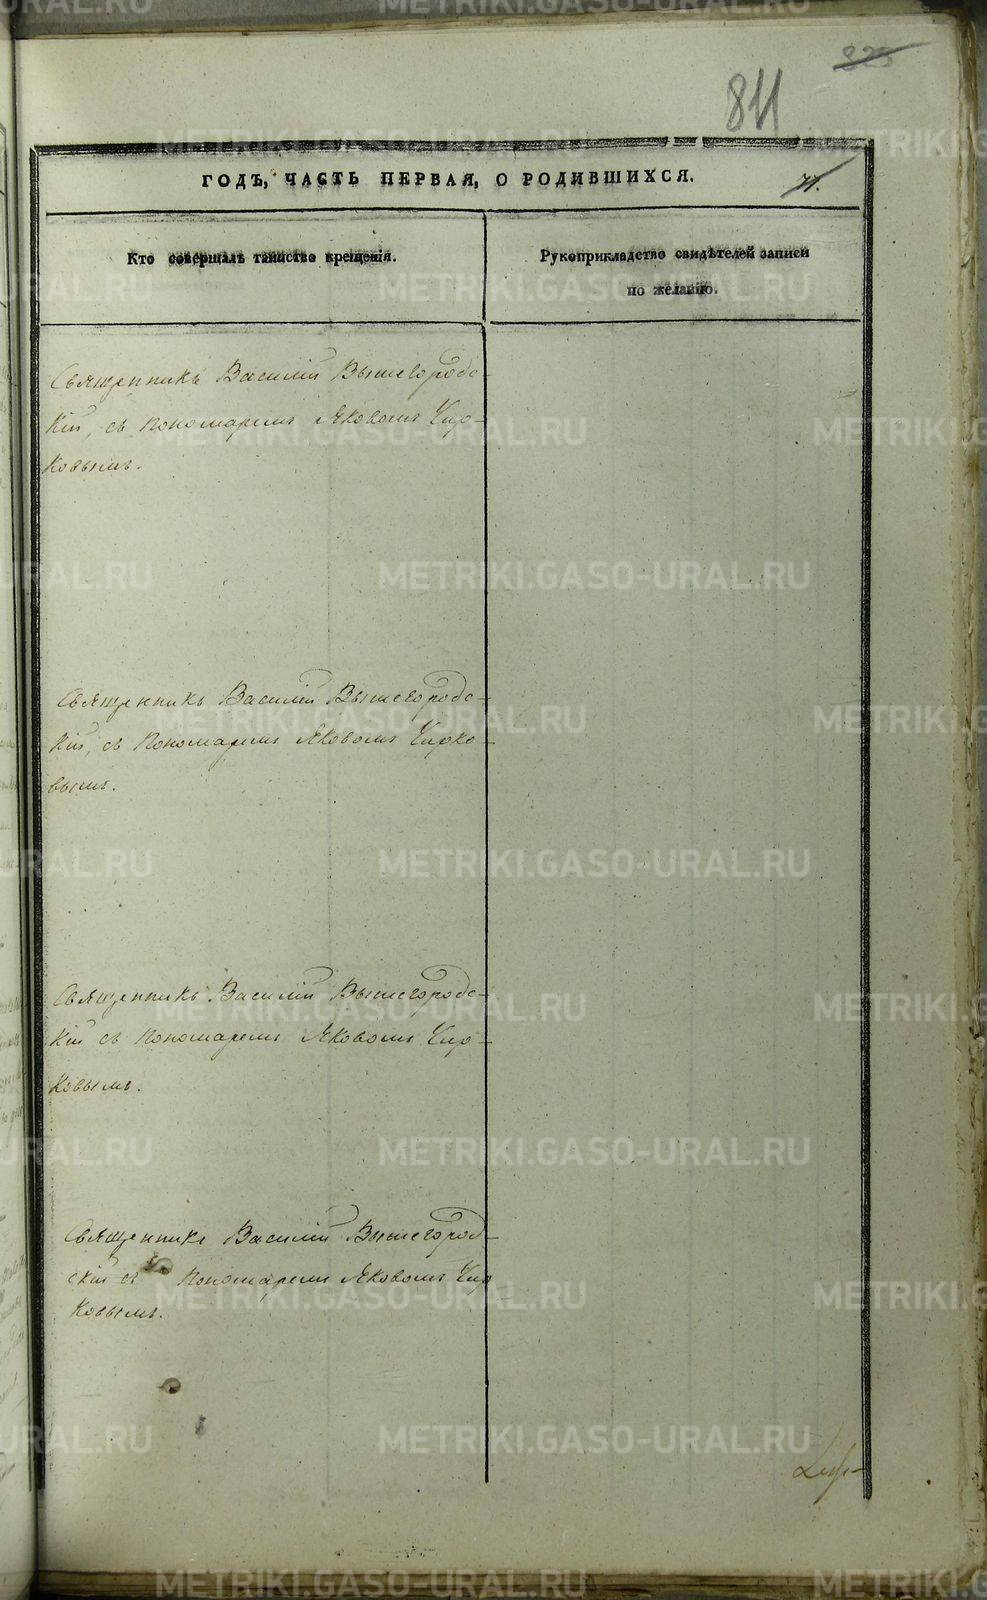 323
811
ГОДЪ, ЧАСТЬ ПЕРВАЯ, О РОДИВШИХСЯ.
71.
Кто совершалъ таинство крещенія.
Рукоприкладство свидѣтелей записи
по желанію.
Священникъ Василій Вышегородс-
кій, съ пономаремъ Яковомъ Чир-
ковымъ.
Священникъ Василій Вышегородс-
кій, съ пономаремъ Яковомъ Чирко-
вымъ.
Священникъ Василій Вышегородс-
кій съ пономаремъ Яковомъ Чир-
ковымъ.
Священникъ Василій Вышегород-
скій съ пономаремъ Яковомъ Чир
ковымъ.
METRIKI.GASO-URAL.RU